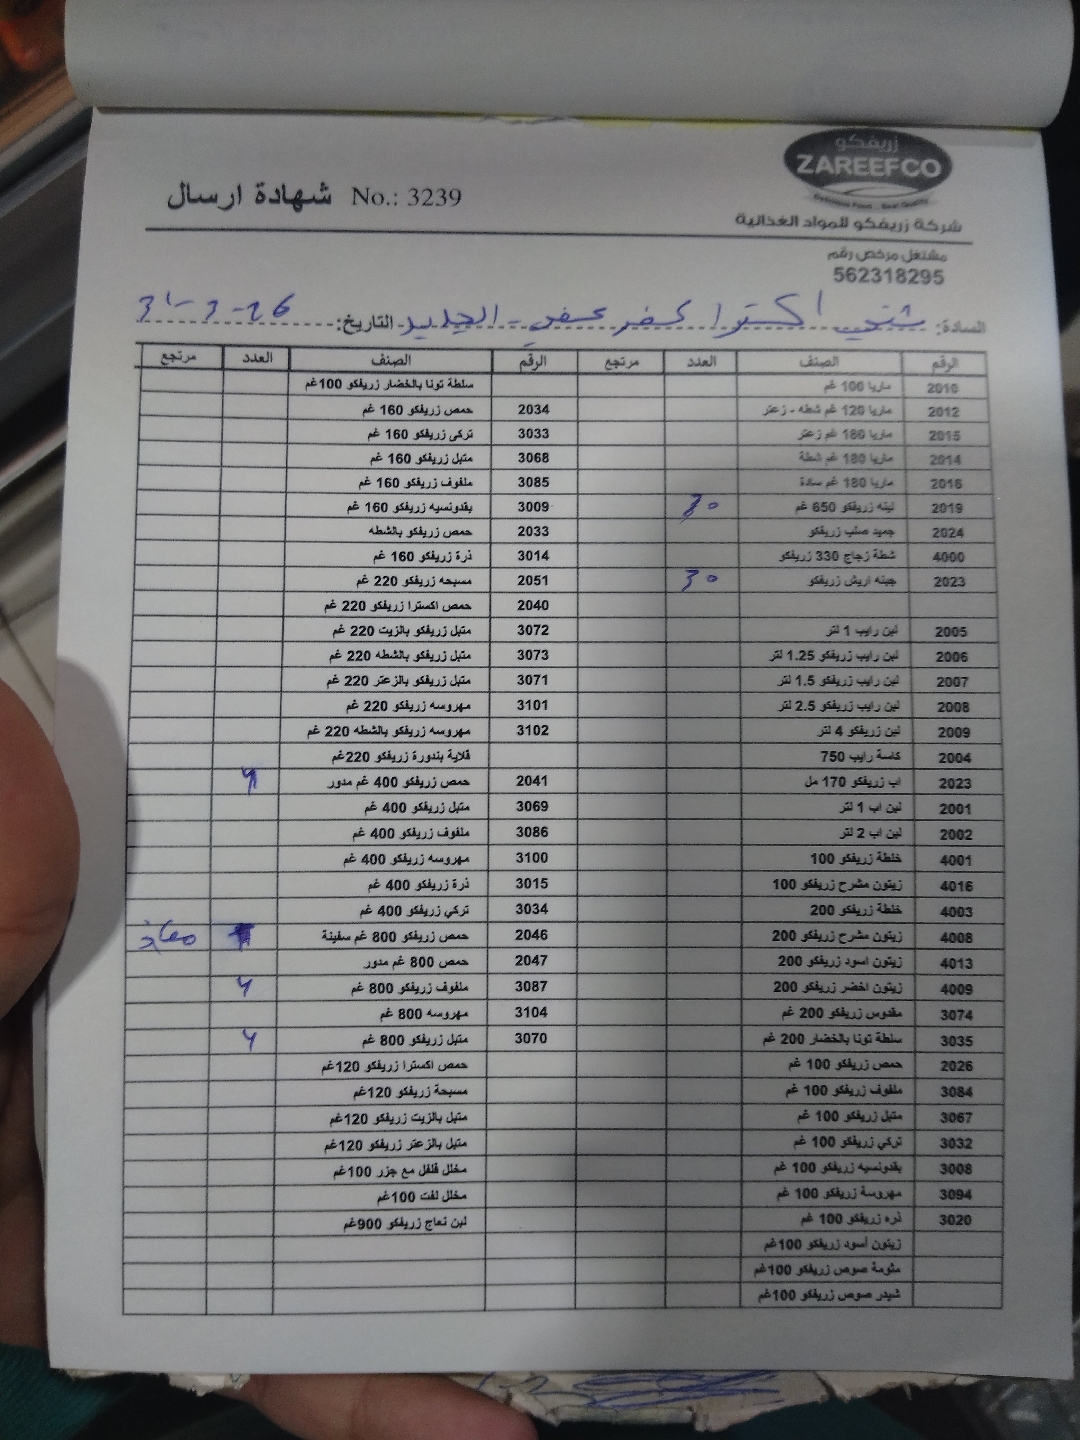 زريفكو
ZAREEFCO
شهادة ارسال No.: 3239
شركة زريفكو للمواد الغذائية
مشتغل مرخص رقم
562318295
السادة: اكسترا كفر عقب - الجديد التاريخ: 31-3-26
الرقم الصنف العدد مرتجع الرقم الصنف العدد مرتجع
2010 ماريا 100 غم سلطة تونا بالخضار زريفكو 100غم
2012 ماريا 120 غم شطه - زعتر 2034 حمص زريفكو 160 غم
2015 ماريا 180 غم زعتر 3033 تركي زريفكو 160 غم
2014 ماريا 180 غم شطة 3068 متبل زريفكو 160 غم
2016 ماريا 180 غم سادة 3085 ملفوف زريفكو 160 غم
2019 لبنه زريفكو 650 غم 3009 بقدونسيه زريفكو 160 غم
2024 جميد صلب زريفكو 2033 حمص زريفكو بالشطه
4000 شطة زجاج 330 زريفكو 3014 ذرة زريفكو 160 غم
2023 جبنه اريش زريفكو 30 2051 مسبحه زريفكو 220 غم
2040 حمص اكسترا زريفكو 220 غم
2005 لبن رايب 1 لتر 3072 متبل زريفكو بالزيت 220 غم
2006 لبن رايب زريفكو 1.25 لتر 3073 متبل زريفكو بالشطه 220 غم
2007 لبن رايب زريفكو 1.5 لتر 3071 متبل زريفكو بالزعتر 220 غم
2008 لبن رايب زريفكو 2.5 لتر 3101 مهروسه زريفكو 220 غم
2009 لبن زريفكو 4 لتر 3102 مهروسه زريفكو بالشطه 220 غم
2004 كاسة رايب 750 قلاية بندورة زريفكو 220غم
2023 اب زريفكو 170 مل 2041 حمص زريفكو 400 غم مدور
2001 لبن اب 1 لتر 3069 متبل زريفكو 400 غم
2002 لبن اب 2 لتر 3086 ملفوف زريفكو 400 غم
4001 خلطة زريفكو 100 3100 مهروسه زريفكو 400 غم
4016 زيتون مشرح زريفكو 100 3015 ذرة زريفكو 400 غم
4003 خلطة زريفكو 200 3034 تركي زريفكو 400 غم
4008 زيتون مشرح زريفكو 200 2046 حمص زريفكو 800 غم سفينة
4013 زيتون اسود زريفكو 200 2047 حمص 800 غم مدور
4009 زيتون اخضر زريفكو 200 3087 ملفوف زريفكو 800 غم 4
3074 مقدوس زريفكو 200 غم 3104 مهروسه 800 غم
3035 سلطة تونا بالخضار 200 غم 3070 متبل زريفكو 800 غم 4
2026 حمص زريفكو 100 غم حمص اكسترا زريفكو 120غم
3084 ملفوف زريفكو 100 غم مسبحة زريفكو 120غم
3067 متبل زريفكو 100 غم متبل بالزيت زريفكو 120غم
3032 تركي زريفكو 100 غم متبل بالزعتر زريفكو 120غم
3008 بقدونسيه زريفكو 100 غم مخلل فلفل مع جزر 100غم
3094 مهروسة زريفكو 100 غم مخلل لفت 100غم
3020 ذره زريفكو 100 غم لبن نعاج زريفكو 900غم
زيتون أسود زريفكو 100غم
مثومة صوص زريفكو 100غم
شيدر صوص زريفكو 100غم